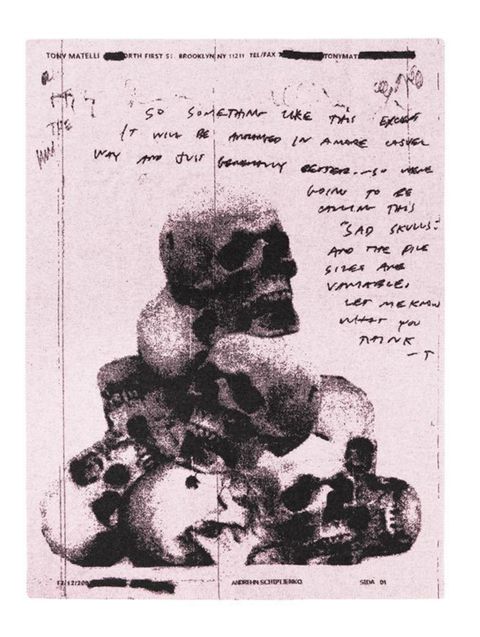 TONY MATELLI ORTH FIRST S BROOKLYN NY 11211 TEL/FAX TONYMAT
THE
SO SOMETHING LIKE THIS EXCEPT
IT WILL BE ARRANGED IN A MORE CASUAL
WAY AND JUST GENERALLY BETTER. SO WERE
GOING TO BE
CALLING THIS
"SAD SKULLS."
AND THE PILE
SIZES ARE
VARIABLE.
LET ME KNOW
WHAT YOU
THINK
-T
12/12/200
SIDA 01